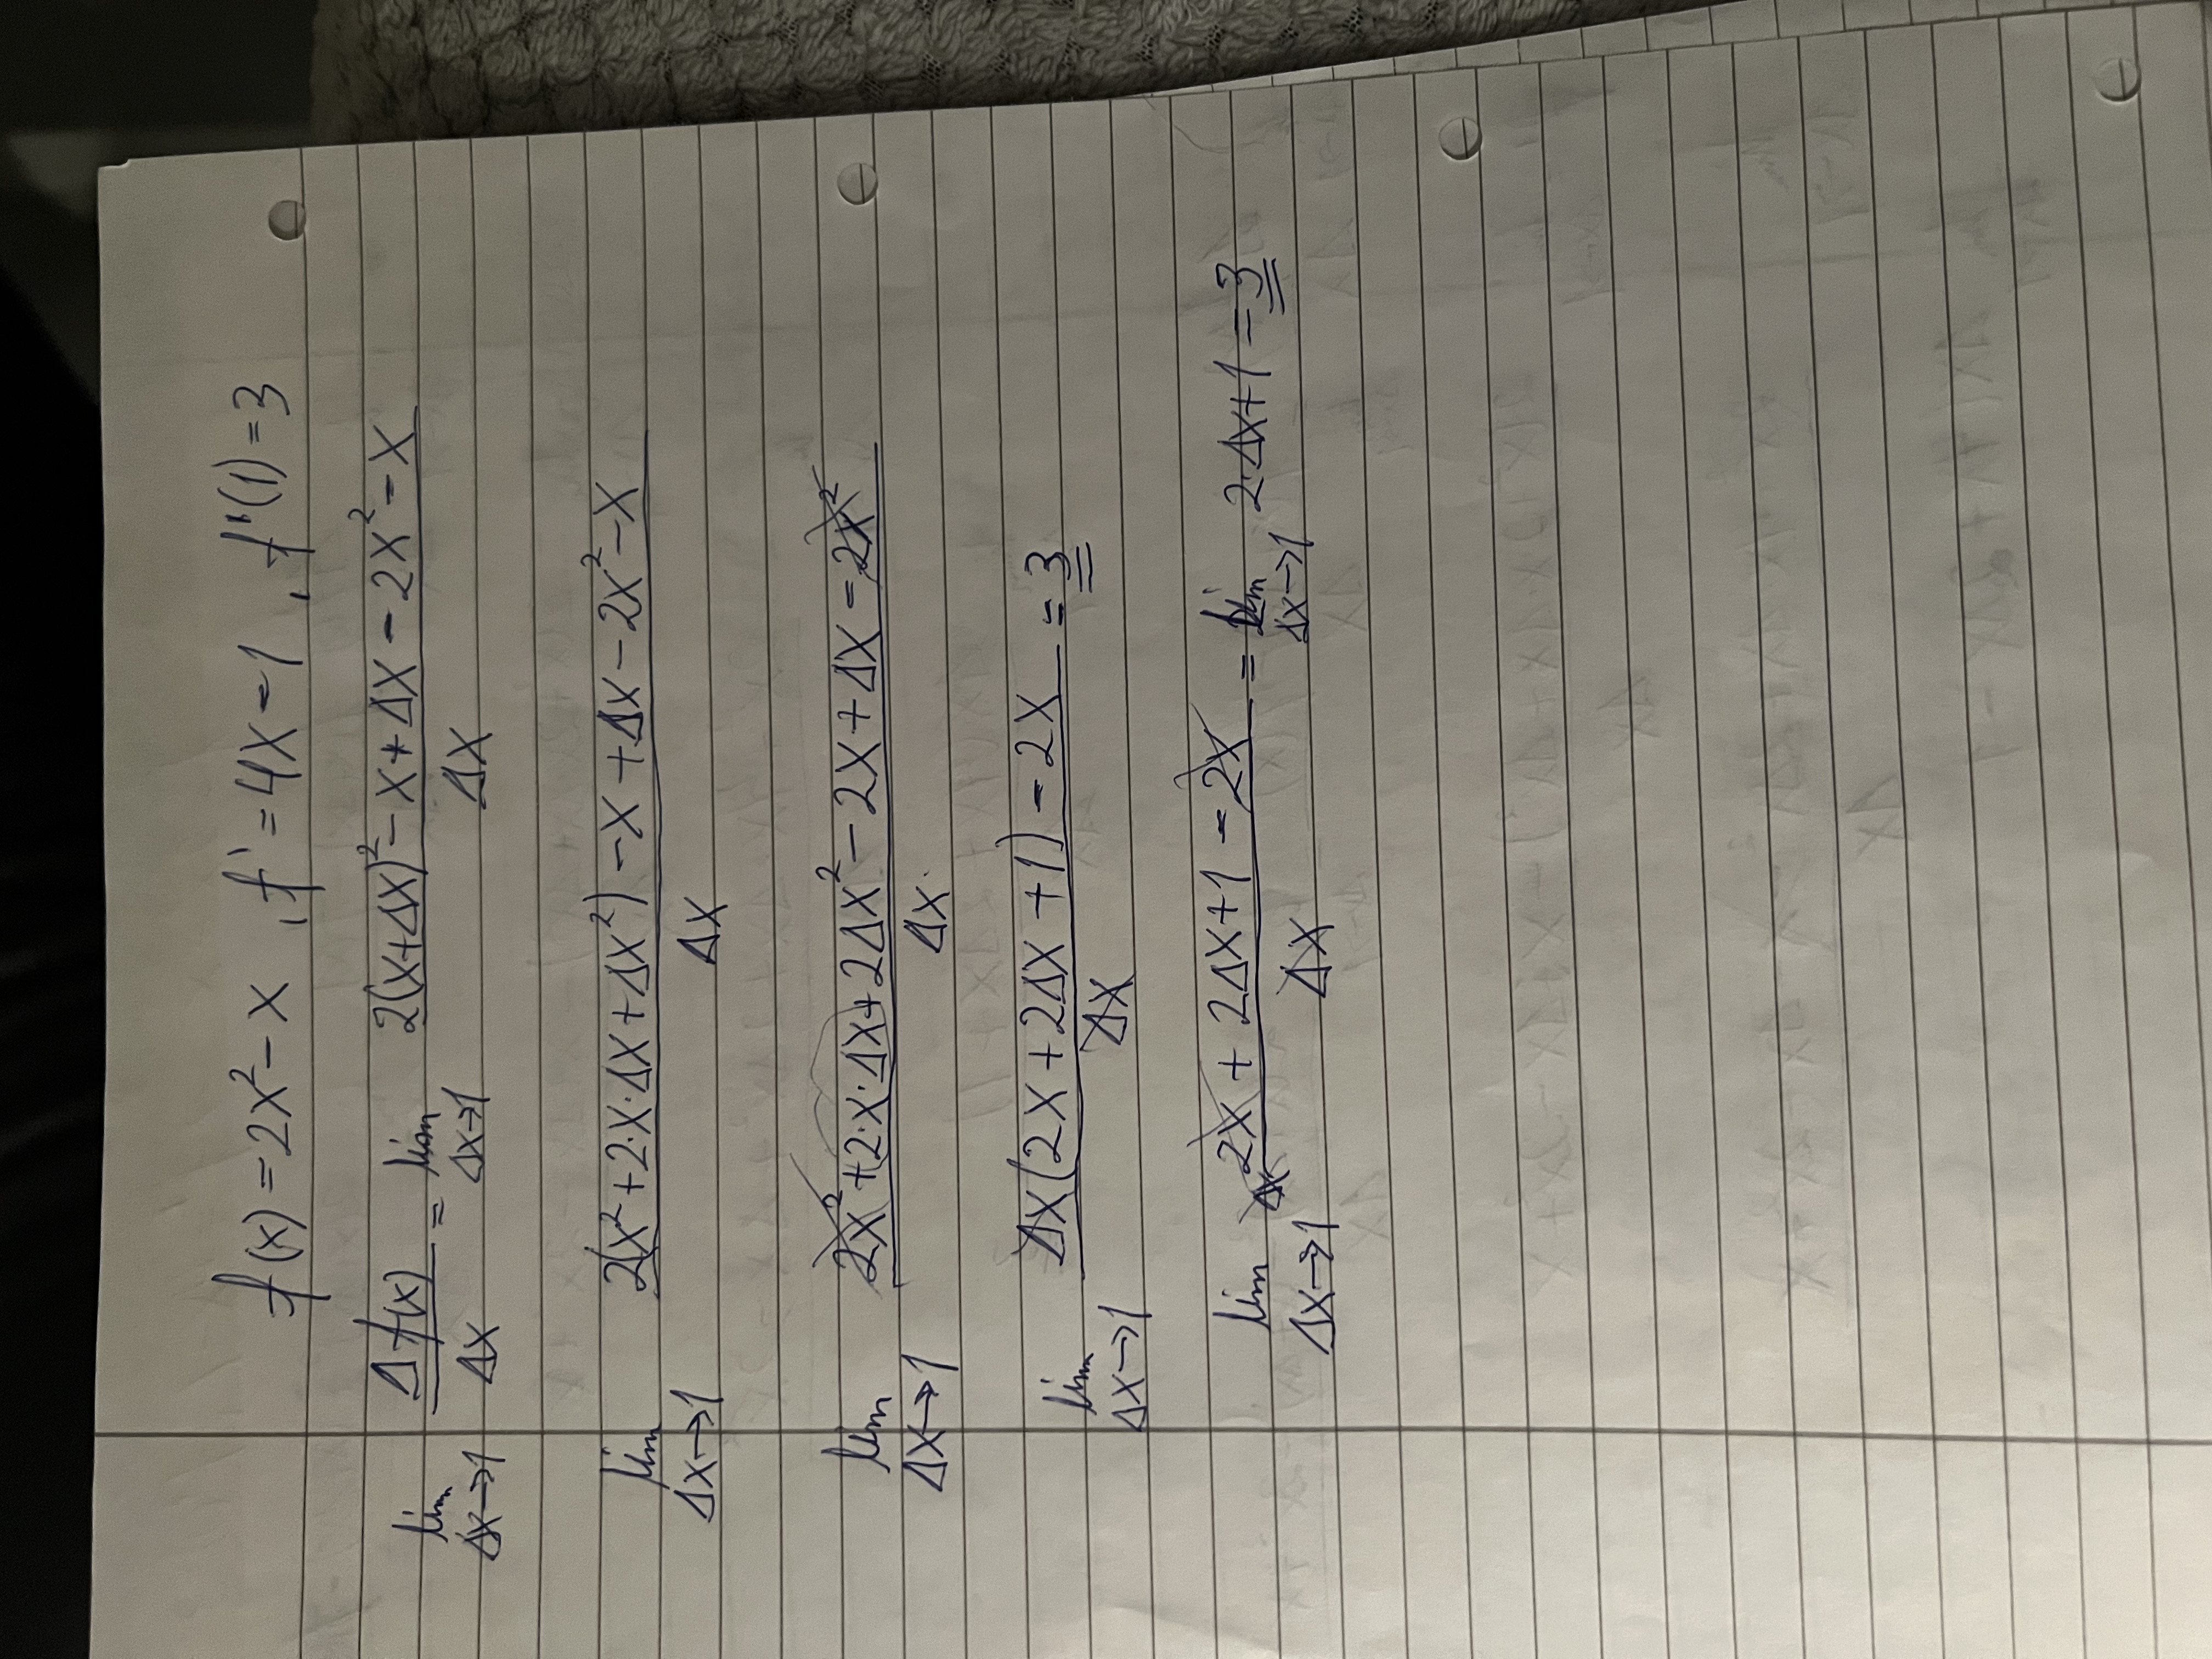 f(x) = 2x² - x , f' = 4x - 1 , f'(1) = 3
lim Δx→1 Δf(x)/Δx = lim Δx→1 (2(x+Δx)² - x + Δx - 2x² - x)/Δx
lim Δx→1 (2(x² + 2·x·Δx + Δx²) - x + Δx - 2x² - x)/Δx
lim Δx→1 (2x² + 2·x·Δx + 2Δx² - 2x + Δx - 2x²)/Δx
lim Δx→1 (Δx(2x + 2Δx + 1) - 2x)/Δx = 3
lim Δx→1 (2x + 2Δx + 1 - 2x)/Δx = lim Δx→1 2·Δx + 1 = 3